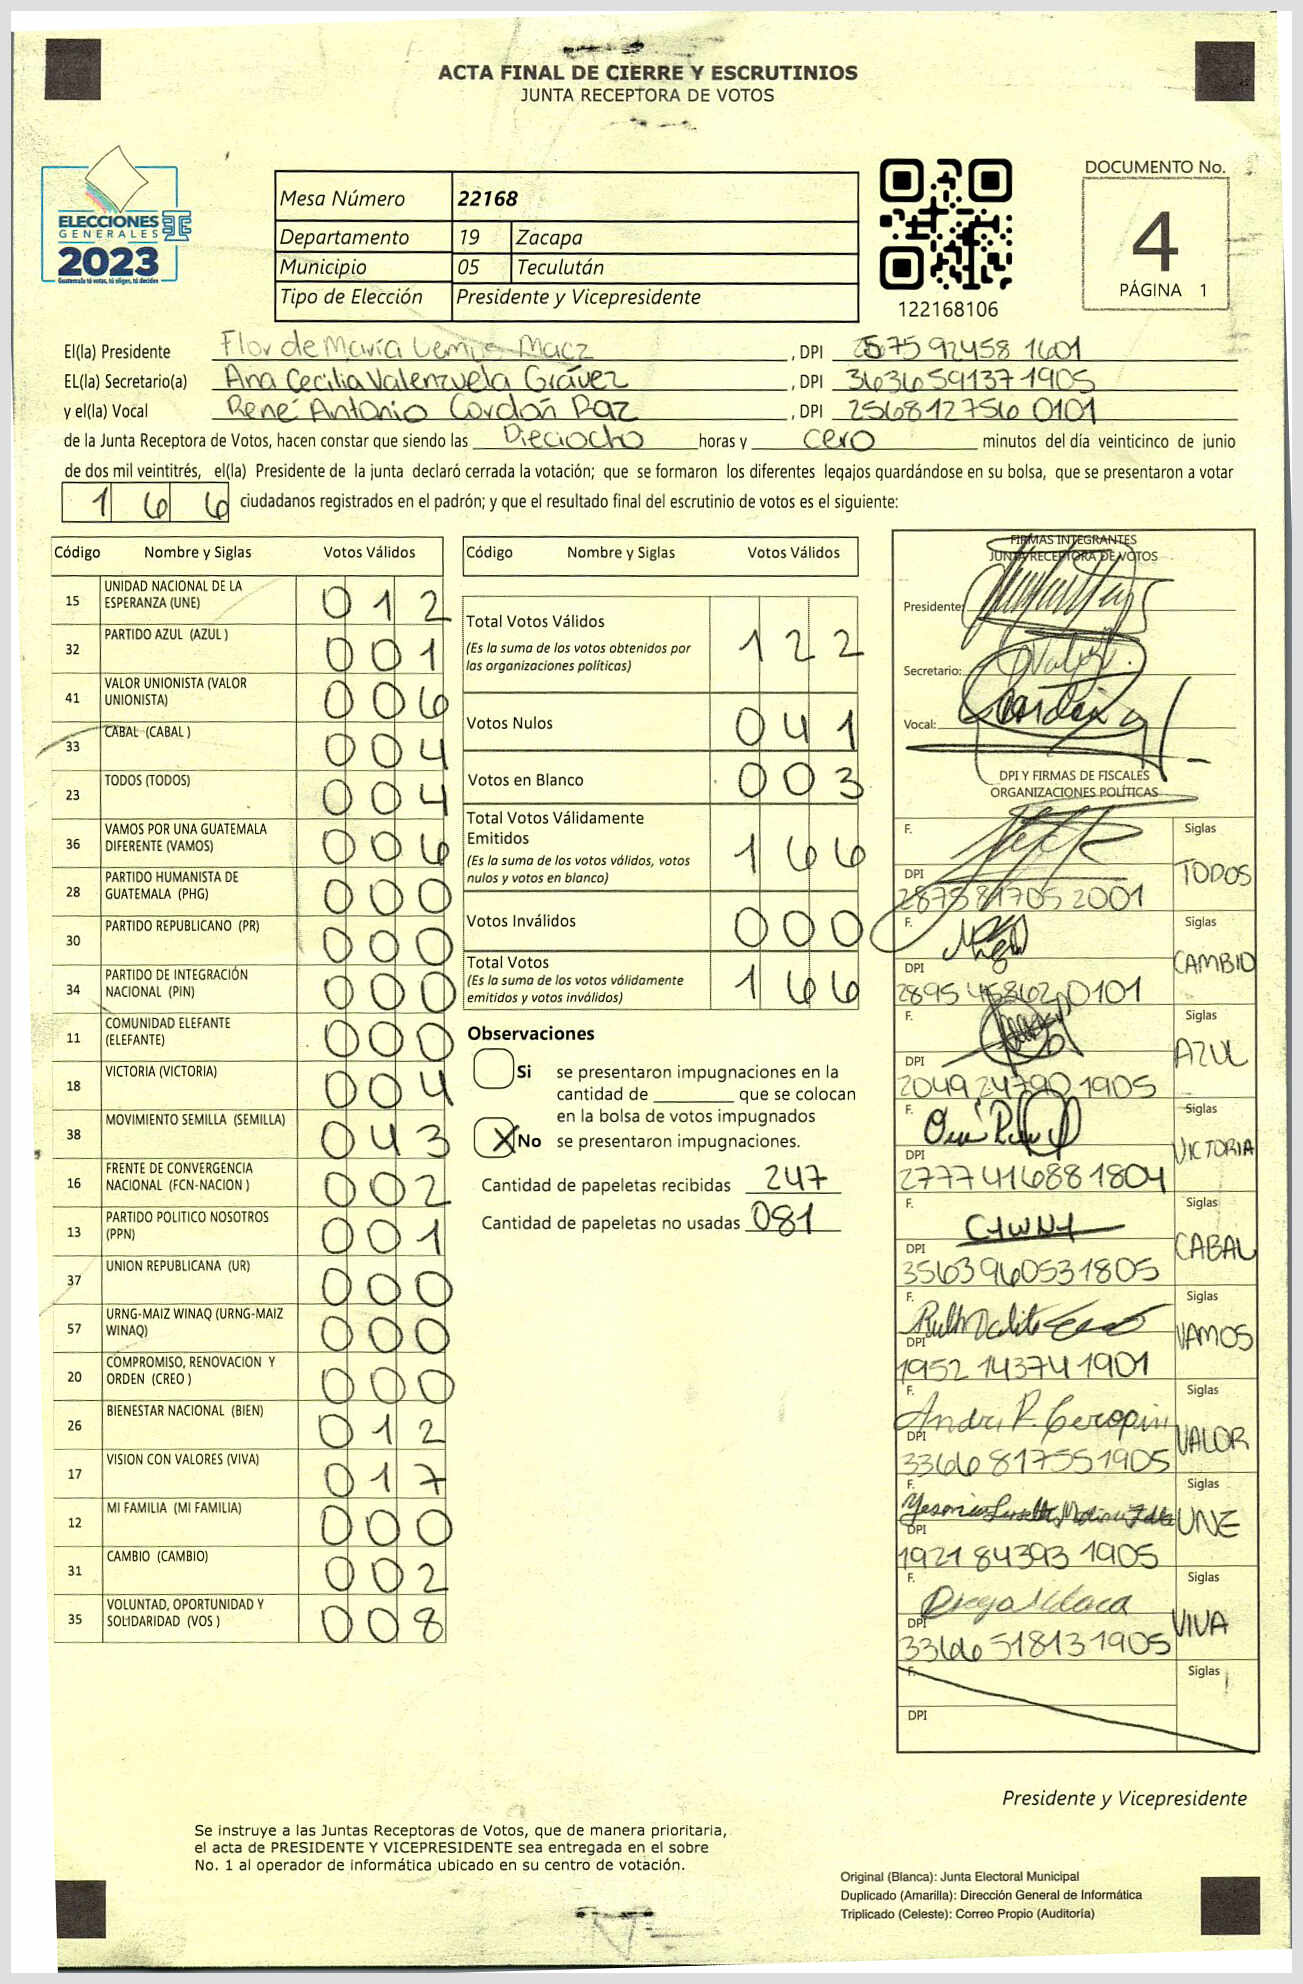 ACTA FINAL DE CIERRE Y ESCRUTINIOS
JUNTA RECEPTORA DE VOTOS
ELECCIONES
GENERALES
2023
Guatemala tú votas, tú eliges, tú decides
Mesa Número 22168
Departamento 19 Zacapa
Municipio 05 Teculután
Tipo de Elección Presidente y Vicepresidente
122168106
DOCUMENTO No.
4
PÁGINA 1
El(la) Presidente Flor de María Lemus Macz, DPI 2575 92458 1601
EL(la) Secretario(a) Ana Cecilia Valenzuela Grávez, DPI 3636591371905
y el(la) Vocal René Antonio Cordón Paz, DPI 2568127560101
de la Junta Receptora de Votos, hacen constar que siendo las Dieciocho horas y cero minutos del día veinticinco de junio
de dos mil veintitrés, el(la) Presidente de la junta declaró cerrada la votación; que se formaron los diferentes legajos guardándose en su bolsa, que se presentaron a votar
166 ciudadanos registrados en el padrón; y que el resultado final del escrutinio de votos es el siguiente:
Código Nombre y Siglas Votos Válidos
15 UNIDAD NACIONAL DE LA ESPERANZA (UNE) 012
32 PARTIDO AZUL (AZUL ) 001
41 VALOR UNIONISTA (VALOR UNIONISTA) 006
33 CABAL (CABAL ) 004
23 TODOS (TODOS) 004
36 VAMOS POR UNA GUATEMALA DIFERENTE (VAMOS) 006
28 PARTIDO HUMANISTA DE GUATEMALA (PHG) 000
30 PARTIDO REPUBLICANO (PR) 000
34 PARTIDO DE INTEGRACIÓN NACIONAL (PIN) 000
11 COMUNIDAD ELEFANTE (ELEFANTE) 000
18 VICTORIA (VICTORIA) 004
38 MOVIMIENTO SEMILLA (SEMILLA) 043
16 FRENTE DE CONVERGENCIA NACIONAL (FCN-NACION ) 002
13 PARTIDO POLITICO NOSOTROS (PPN) 001
37 UNION REPUBLICANA (UR) 000
57 URNG-MAIZ WINAQ (URNG-MAIZ WINAQ) 000
20 COMPROMISO, RENOVACION Y ORDEN (CREO ) 000
26 BIENESTAR NACIONAL (BIEN) 012
17 VISION CON VALORES (VIVA) 017
12 MI FAMILIA (MI FAMILIA) 000
31 CAMBIO (CAMBIO) 002
35 VOLUNTAD, OPORTUNIDAD Y SOLIDARIDAD (VOS ) 008
Código Nombre y Siglas Votos Válidos
Total Votos Válidos 122
(Es la suma de los votos obtenidos por
las organizaciones políticas)
Votos Nulos 041
Votos en Blanco 003
Total Votos Válidamente
Emitidos 166
(Es la suma de los votos válidos, votos
nulos y votos en blanco)
Votos Inválidos 000
Total Votos 166
(Es la suma de los votos válidamente
emitidos y votos inválidos)
Observaciones
Si se presentaron impugnaciones en la
cantidad de ________ que se colocan
en la bolsa de votos impugnados
X No se presentaron impugnaciones.
Cantidad de papeletas recibidas 247
Cantidad de papeletas no usadas 081
FIRMAS INTEGRANTES
JUNTA RECEPTORA DE VOTOS
Presidente:
Secretario:
Vocal:
DPI Y FIRMAS DE FISCALES
ORGANIZACIONES POLÍTICAS
F. Siglas
DPI TODOS
2875 81705 2001
F. Siglas
DPI CAMBIO
2895 45862 0101
F. Siglas
DPI AZUL
2049 24790 1905
F. Siglas
DPI VICTORIA
2777 41688 1804
F. Siglas
DPI CABAL
3563960531805
F. Siglas
DPI VAMOS
1952 14374 1901
F. Siglas
DPI VALOR
3366 81755 1905
F. Siglas
DPI UNE
1921 84393 1905
F. Siglas
DPI VIVA
3366518131905
F. Siglas
DPI
Presidente y Vicepresidente
Se instruye a las Juntas Receptoras de Votos, que de manera prioritaria,
el acta de PRESIDENTE Y VICEPRESIDENTE sea entregada en el sobre
No. 1 al operador de informática ubicado en su centro de votación.
Original (Blanca): Junta Electoral Municipal
Duplicado (Amarilla): Dirección General de Informática
Triplicado (Celeste): Correo Propio (Auditoría)